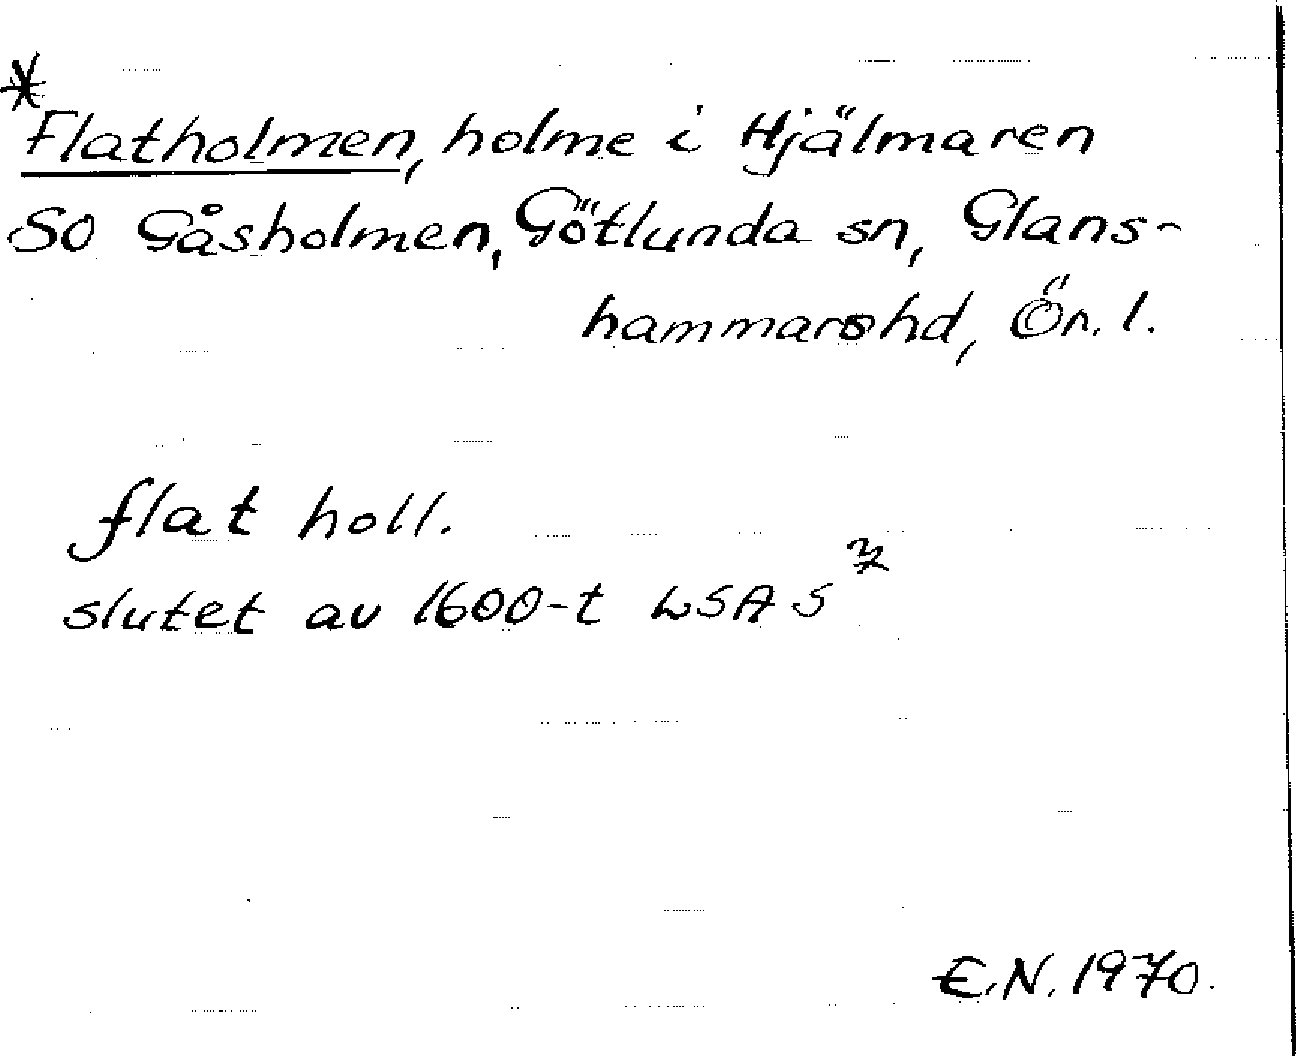 *Flatholmen, holme i Hjälmaren
SO Gåsholmen, Götlunda sn, Glans-
hammarshd, Ör. l.
flat holl.
slutet av 1600-t LSA S
E.N. 1970.